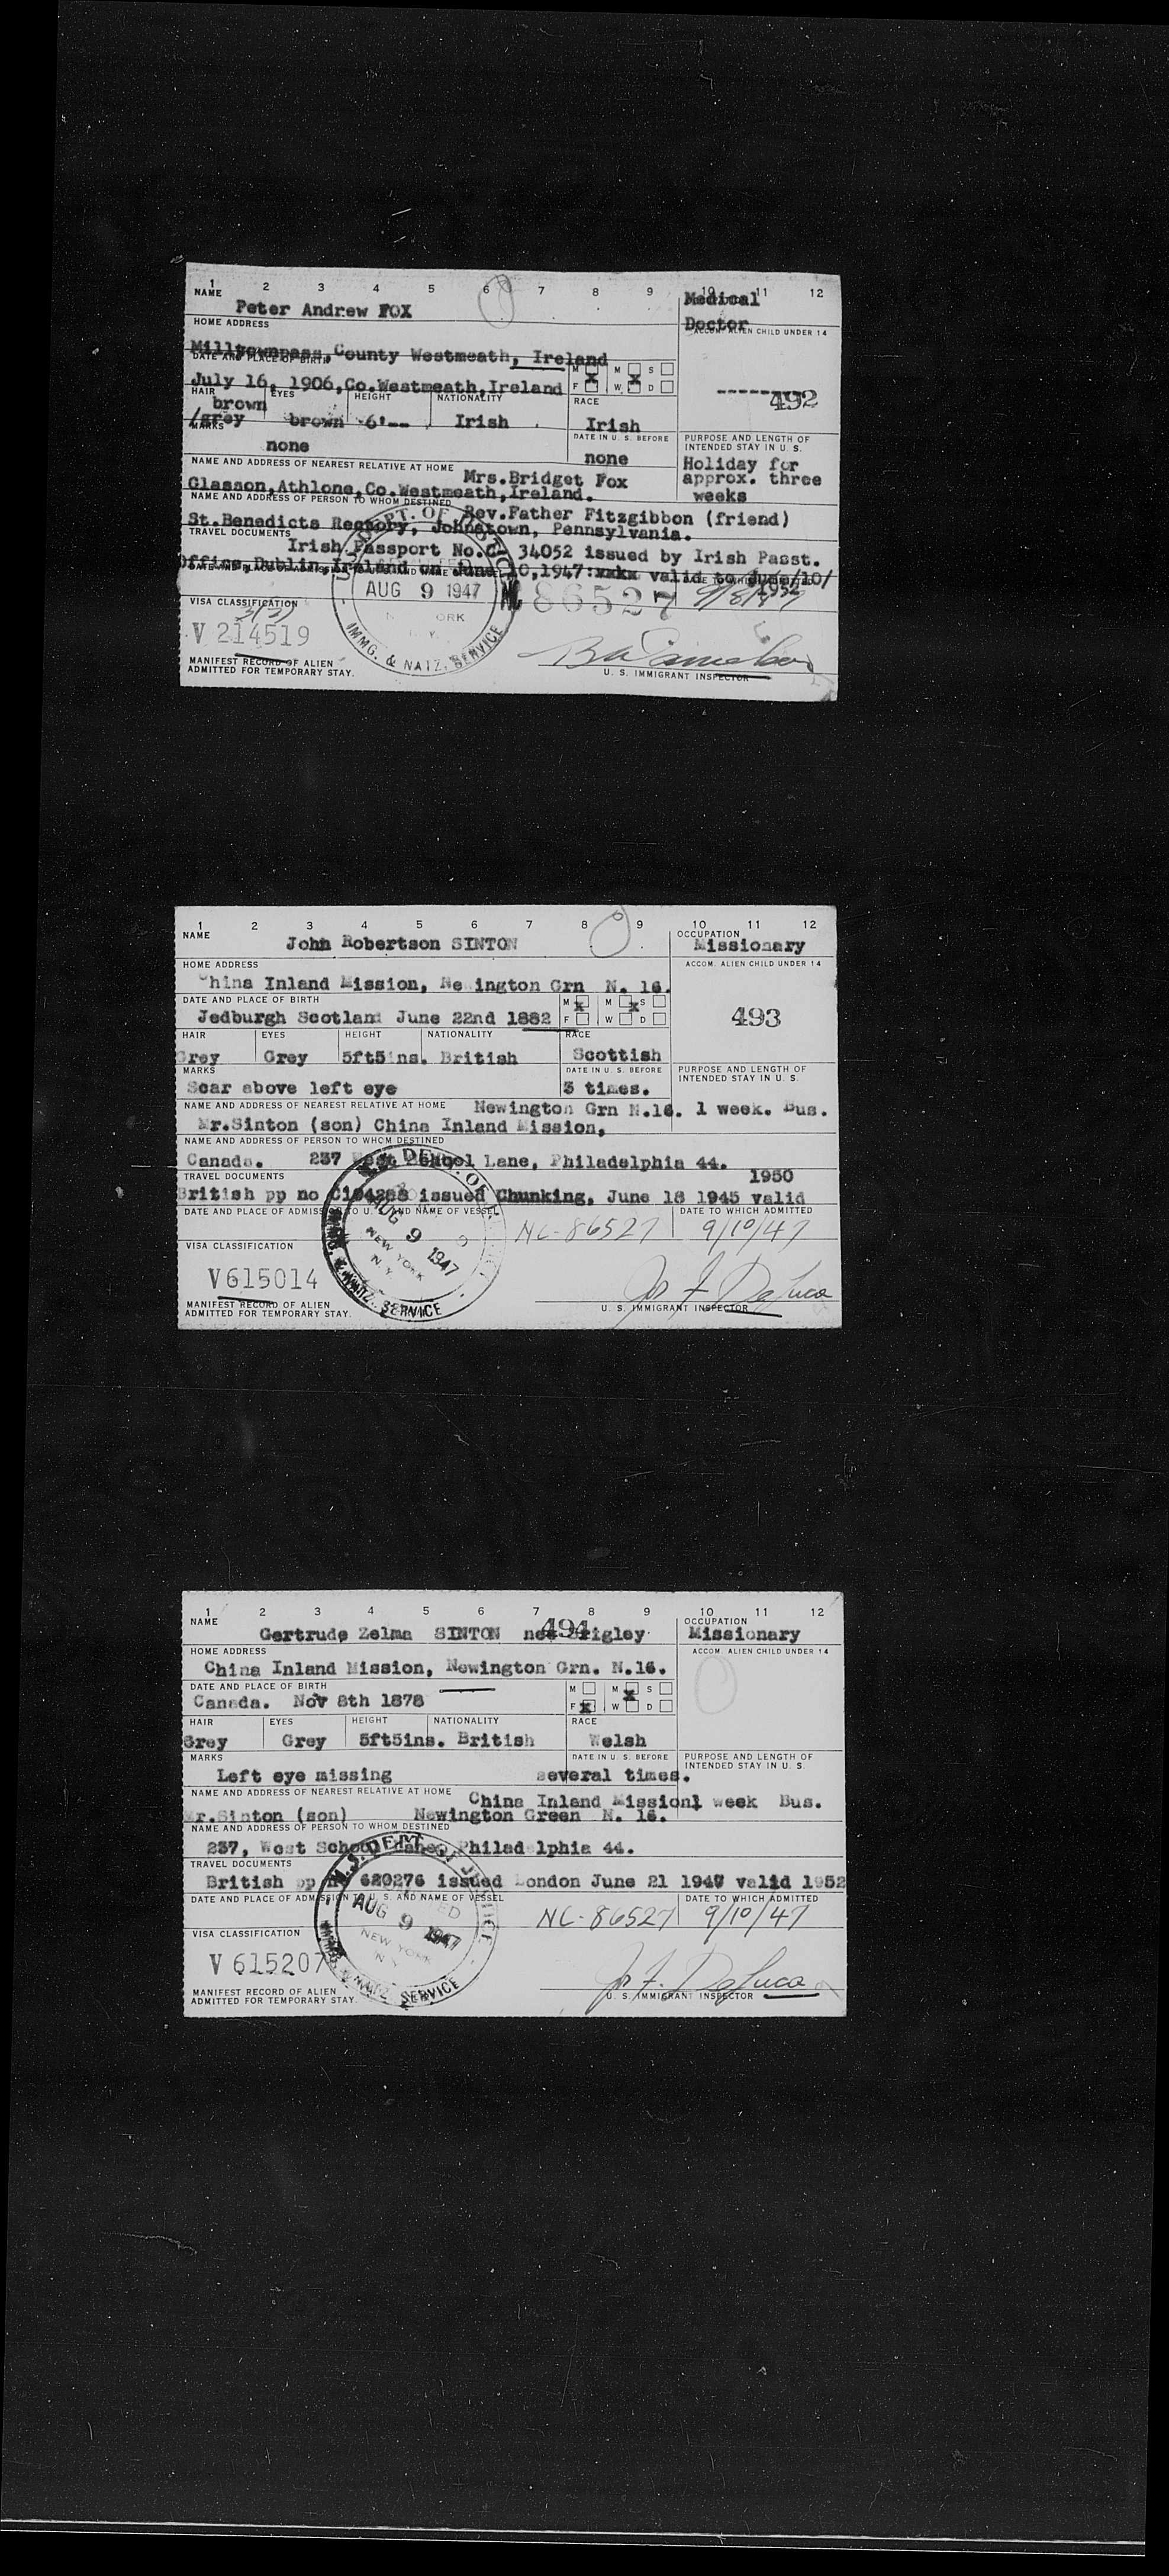 1 2 3 4 5 6 7 8 9 10 11 12
NAME
Medical
Peter Andrew FOX
HOME ADDRESS
Doctor
ACCOM. ALIEN CHILD UNDER 14
Milltownpass, County Westmeath, Ireland
DATE AND PLACE OF BIRTH
M X M X S
July 16, 1906, Co. Westmeath, Ireland
F W D
-----492
HAIR EYES HEIGHT NATIONALITY RACE
brown
/grey brown 6'-- Irish Irish
MARKS DATE IN U. S. BEFORE PURPOSE AND LENGTH OF
INTENDED STAY IN U. S.
none none
NAME AND ADDRESS OF NEAREST RELATIVE AT HOME Mrs.Bridget Fox
Holiday for
approx. three
weeks
Glasson, Athlone, Co. Westmeath, Ireland.
NAME AND ADDRESS OF PERSON TO WHOM DESTINED
Rev.Father Fitzgibbon (friend)
St.Benedicts Rectory, Johnstown, Pennsylvania.
TRAVEL DOCUMENTS
Irish Passport No.C- 34052 issued by Irish Passt.
Office Dublin, Ireland on June 10,1947:xxkx valid to June/10/
1952
AUG 9 1947
NC 86527
VISA CLASSIFICATION
V 214519
IMMG. & NATZ. SERVICE
MANIFEST RECORD OF ALIEN
ADMITTED FOR TEMPORARY STAY.
U. S. IMMIGRANT INSPECTOR
1 2 3 4 5 6 7 8 9 10 11 12
NAME OCCUPATION
John Robertson SINTON Missionary
HOME ADDRESS ACCOM. ALIEN CHILD UNDER 14
China Inland Mission, Ne ington Grn N. 16.
DATE AND PLACE OF BIRTH M X M X S
Jedburgh Scotland June 22nd 1882 F W D
493
HAIR EYES HEIGHT NATIONALITY RACE
Grey Grey 5ft5ins. British Scottish
MARKS DATE IN U. S. BEFORE PURPOSE AND LENGTH OF
INTENDED STAY IN U. S.
Scar above left eye 3 times.
NAME AND ADDRESS OF NEAREST RELATIVE AT HOME Newington Grn N.16. 1 week. Bus.
Mr.Sinton (son) China Inland Mission,
NAME AND ADDRESS OF PERSON TO WHOM DESTINED
Canada. 237 West School Lane, Philadelphia 44.
TRAVEL DOCUMENTS 1950
British pp no issued Chunking, June 18 1945 valid
DATE AND PLACE OF ADMISSION TO U. S. AND NAME OF VESSEL DATE TO WHICH ADMITTED
NC-86527 9/10/47
AUG 9 1947
NEW YORK
N.Y.
VISA CLASSIFICATION
V615014
Jos F. DeLuca
MANIFEST RECORD OF ALIEN
ADMITTED FOR TEMPORARY STAY.
SERVICE
U. S. IMMIGRANT INSPECTOR
1 2 3 4 5 6 7 8 9 10 11 12
NAME 494 OCCUPATION
Gertrude Zelma SINTON nee Wrigley Missionary
HOME ADDRESS ACCOM. ALIEN CHILD UNDER 14
China Inland Mission, Newington Grn. N.16.
DATE AND PLACE OF BIRTH M M X S
Canada. Nov 8th 1878 F X W D
HAIR EYES HEIGHT NATIONALITY RACE
Grey Grey 5ft5ins. British Welsh
MARKS DATE IN U. S. BEFORE PURPOSE AND LENGTH OF
INTENDED STAY IN U. S.
Left eye missing several times.
NAME AND ADDRESS OF NEAREST RELATIVE AT HOME China Inland Mission1 week Bus.
Mr.Sinton (son) Newington Green N. 16.
NAME AND ADDRESS OF PERSON TO WHOM DESTINED
237, West School Lane, Philad lphia 44.
TRAVEL DOCUMENTS
British pp no 620276 issued London June 21 1947 valid 1952
DATE AND PLACE OF ADMISSION TO U. S. AND NAME OF VESSEL DATE TO WHICH ADMITTED
NC-86527 9/10/47
AUG 9 1947
NEW YORK
N.Y.
VISA CLASSIFICATION
V 615207
Jos F. DeLuca
MANIFEST RECORD OF ALIEN
ADMITTED FOR TEMPORARY STAY.
SERVICE
U. S. IMMIGRANT INSPECTOR